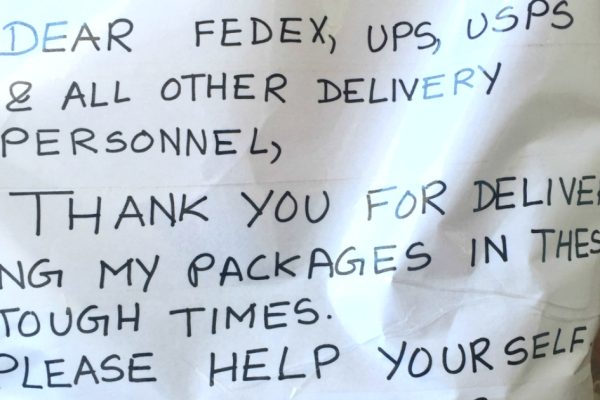 DEAR FEDEX, UPS, USPS
& ALL OTHER DELIVERY
PERSONNEL,
THANK YOU FOR DELIVE
NG MY PACKAGES IN THES
TOUGH TIMES.
PLEASE HELP YOURSELF.